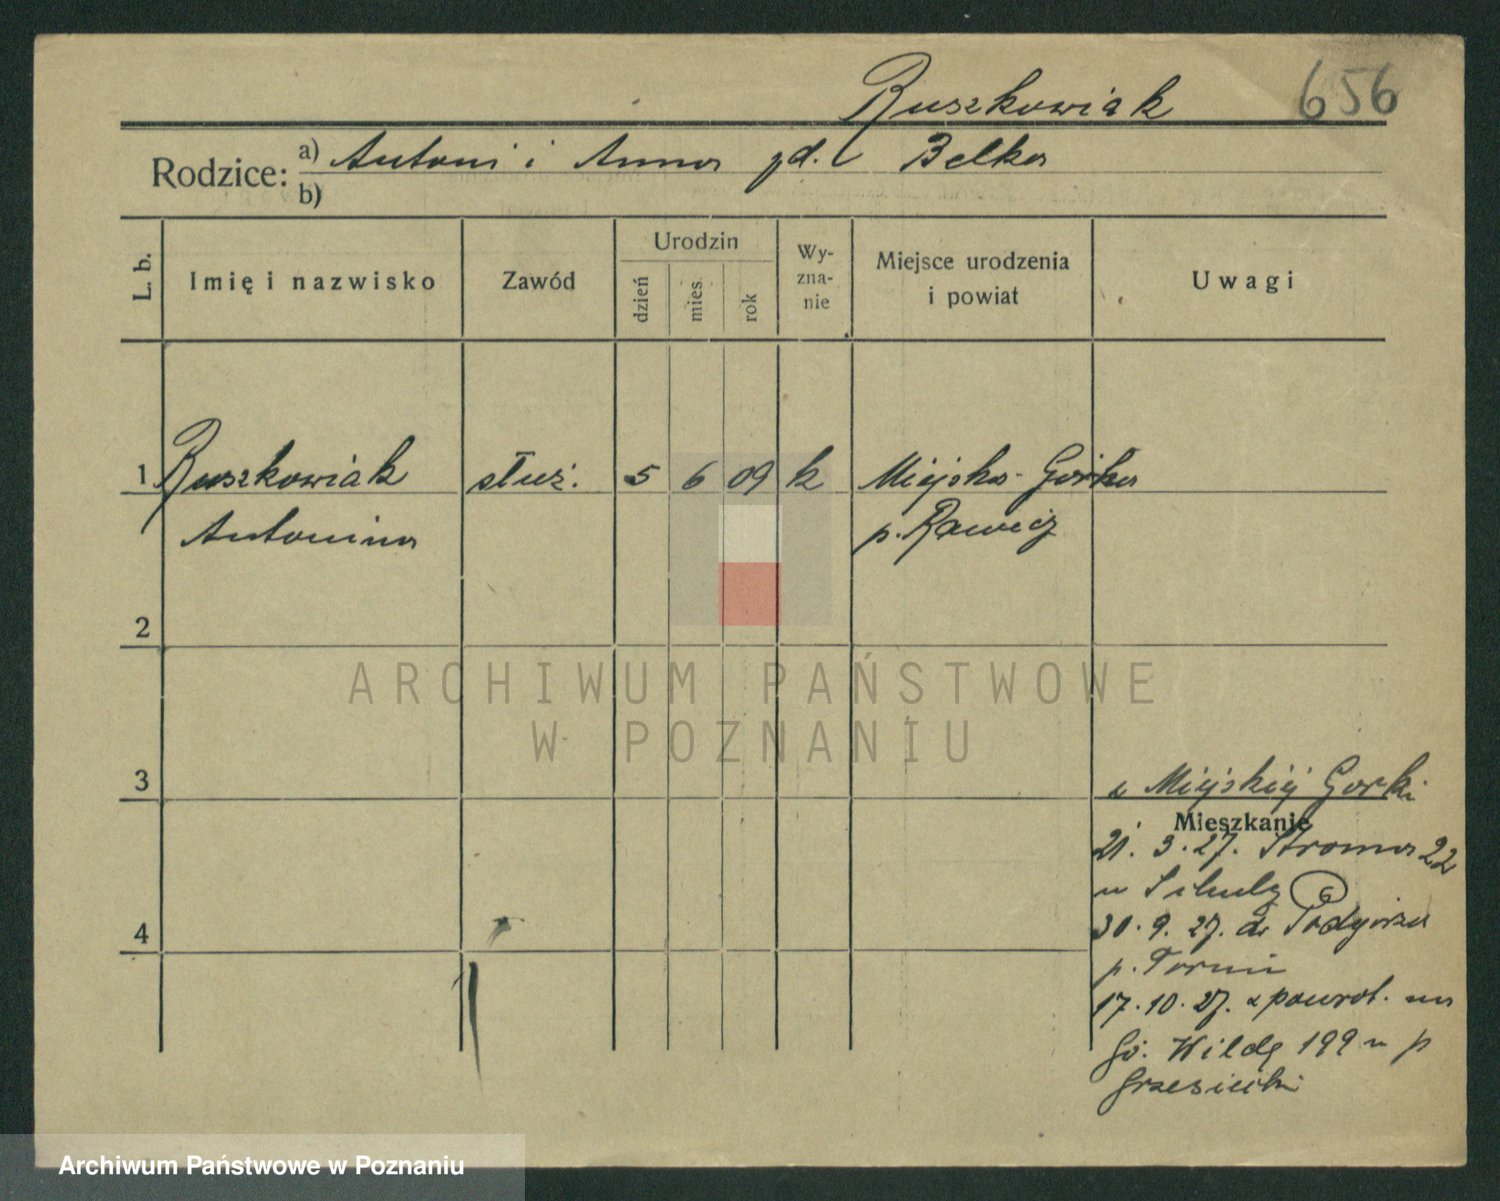 Ruszkowiak 656
Rodzice: a) Antoni i Anna zd. Belka
b)
L. b.
Imię i nazwisko
Zawód
Urodzin
dzień
mies.
rok
Wy-
zna-
nie
Miejsce urodzenia
i powiat
Uwagi
1 Ruszkowiak służ. 5 6 09 k Miejska-Górka
Antonina p. Rawicz
2
ARCHIWUM PAŃSTWOWE
W POZNANIU
3
z Miejskiej Gorki
Mieszkanie
21. 3. 27. Stroma 22
u
4
30. 9. 27. do Podgórza
p. Toruń
17. 10. 27. z powrot. na
Gó. Wildę 199 u p
Archiwum Państwowe w Poznaniu